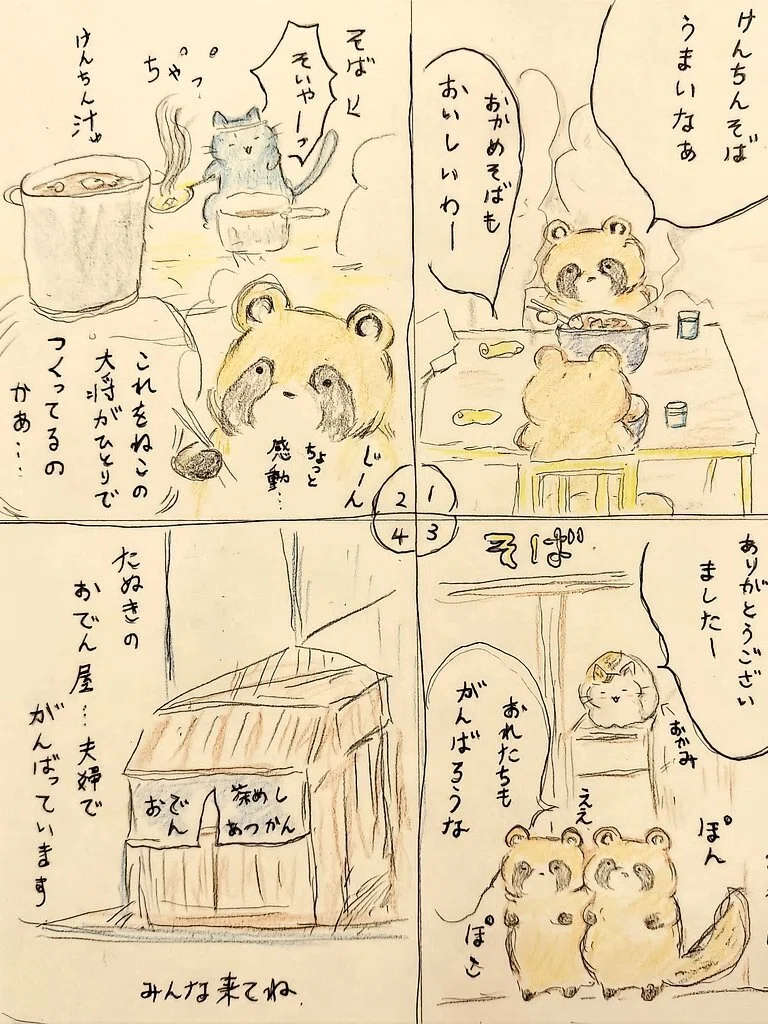 けんちんそば
うまいなぁ
おかめそばも
おいしいわー
1
そば
そいやーっ
ちゃっ
けんちん汁
これをねこの
大将がひとりで
つくってるの
かぁ…
じーん
ちょっと
感動…
2
そば
ありがとうござい
ましたー
おかみ
おれたちも
がんばろうな
ええ
ぽん
ぽこ
3
たぬきの
おでん屋…夫婦で
がんばっています
おでん
茶めし
あつかん
みんな来てね
4